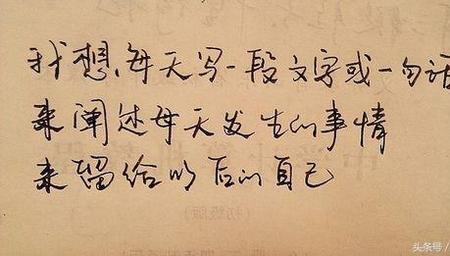 我想,每天写一段文字或一句话
来阐述每天发生的事情
来留给以后的自己
(初级版)
头条号/